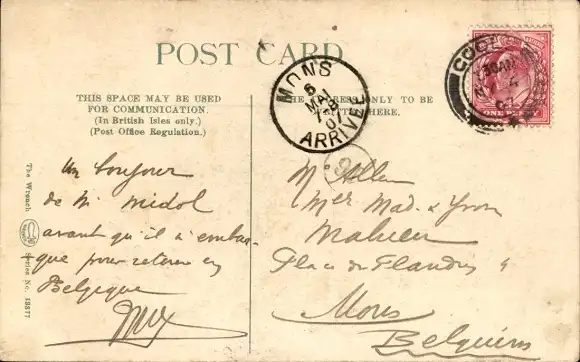 POST CARD
THIS SPACE MAY BE USED
FOR COMMUNICATION.
(In British Isles only.)
(Post Office Regulation.)
THE ADDRESS ONLY TO BE
WRITTEN HERE.
MONS
8
MAI
07
ARRIVÉE
ONE PENNY
The Wrench Series No. 13877
Un bonjour
de Mr Midol
avant qu'il s'embar-
que pour retour en
Belgique
Mlles Mad. & Yvon
Place de Flandres 4
Mons
Belguim